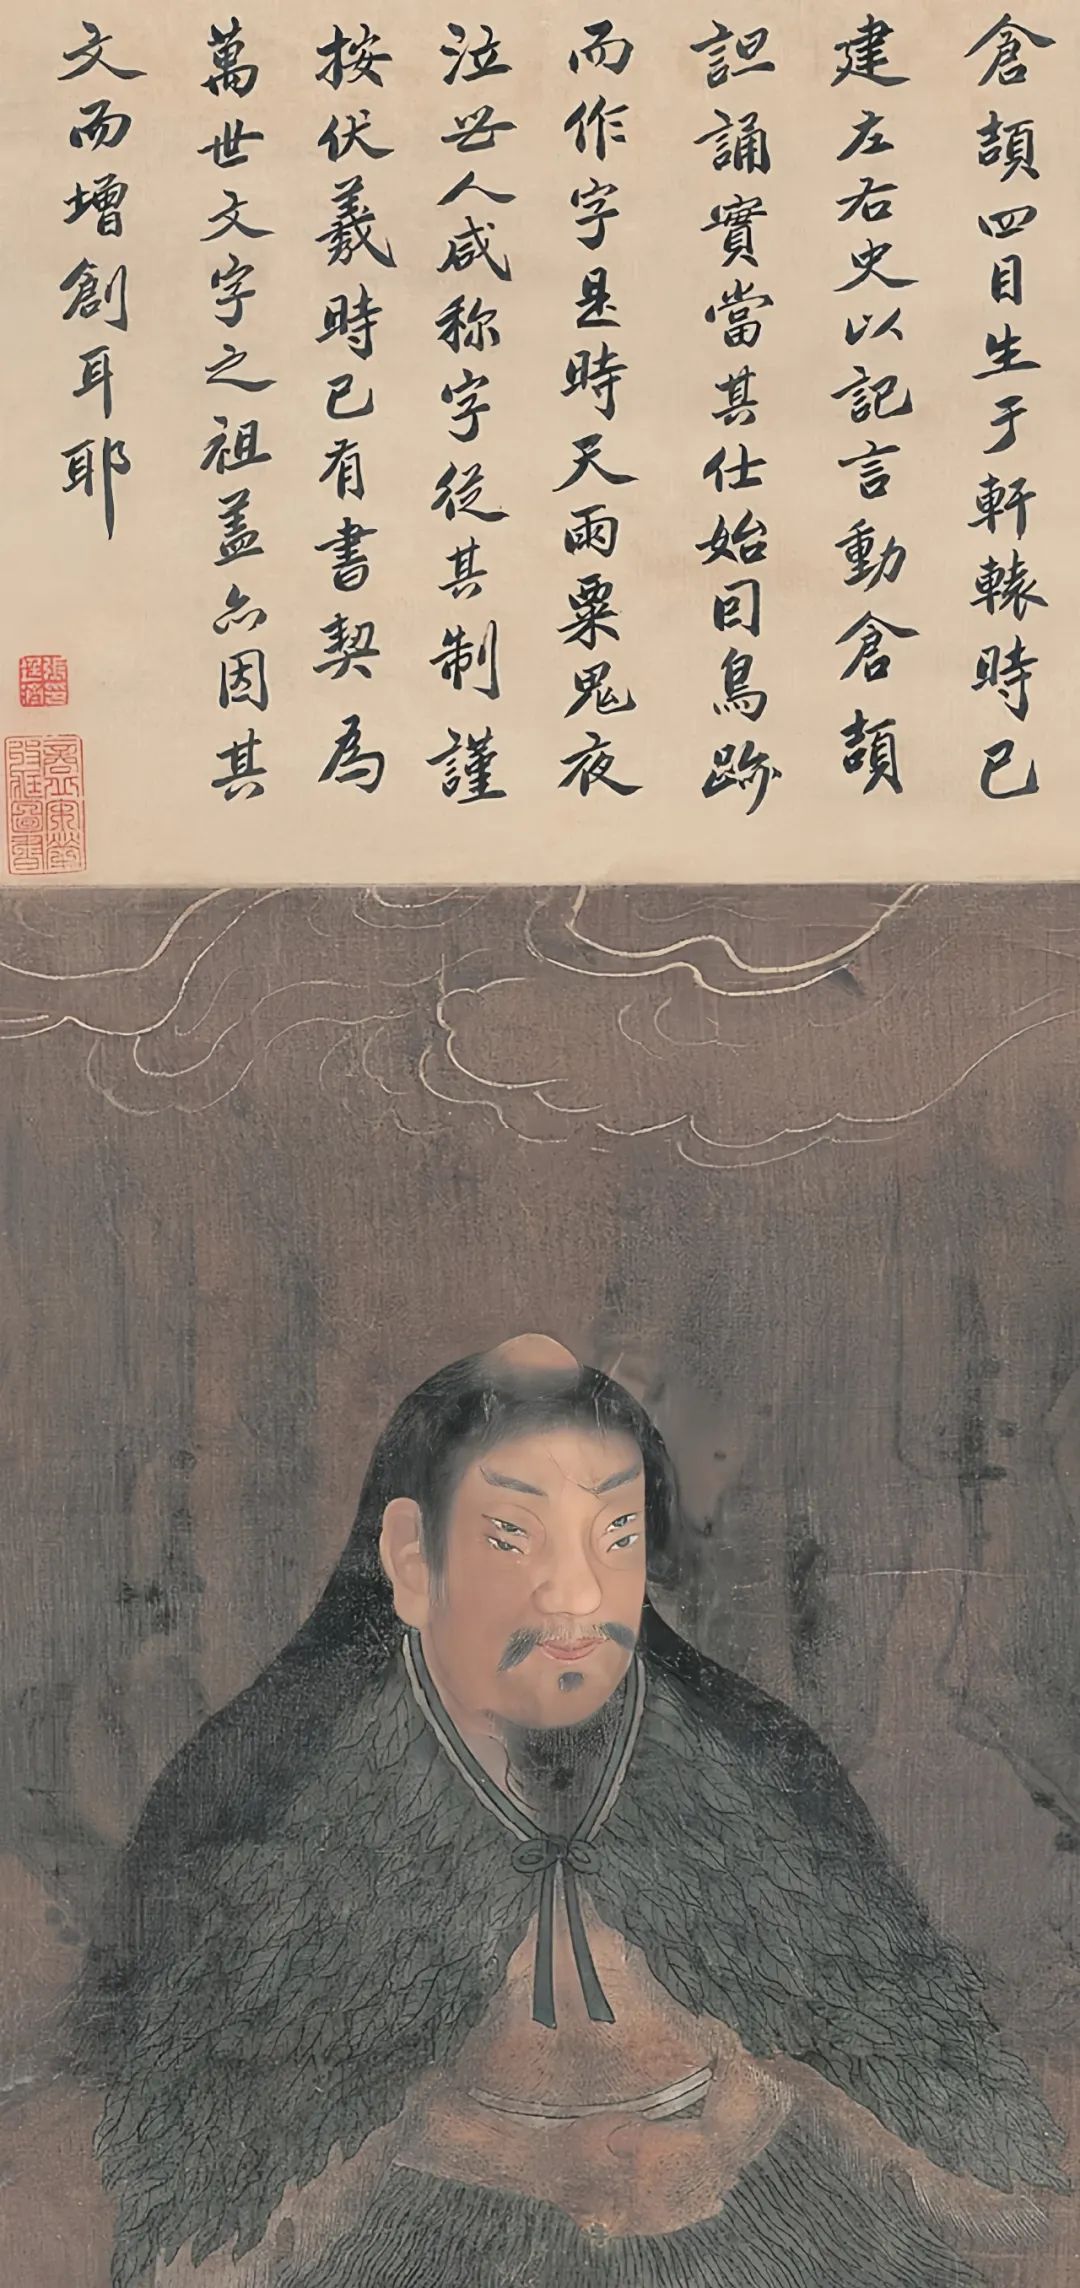 倉頡四目生于軒轅時已
建左右史以記言動倉頡
詚誦實當其仕始囙鳥跡
而作字是時天雨粟鬼夜
泣世人咸称字從其制謹
按伏羲時已有書契為
萬世文字之祖盖亦因其
文而增創耳耶